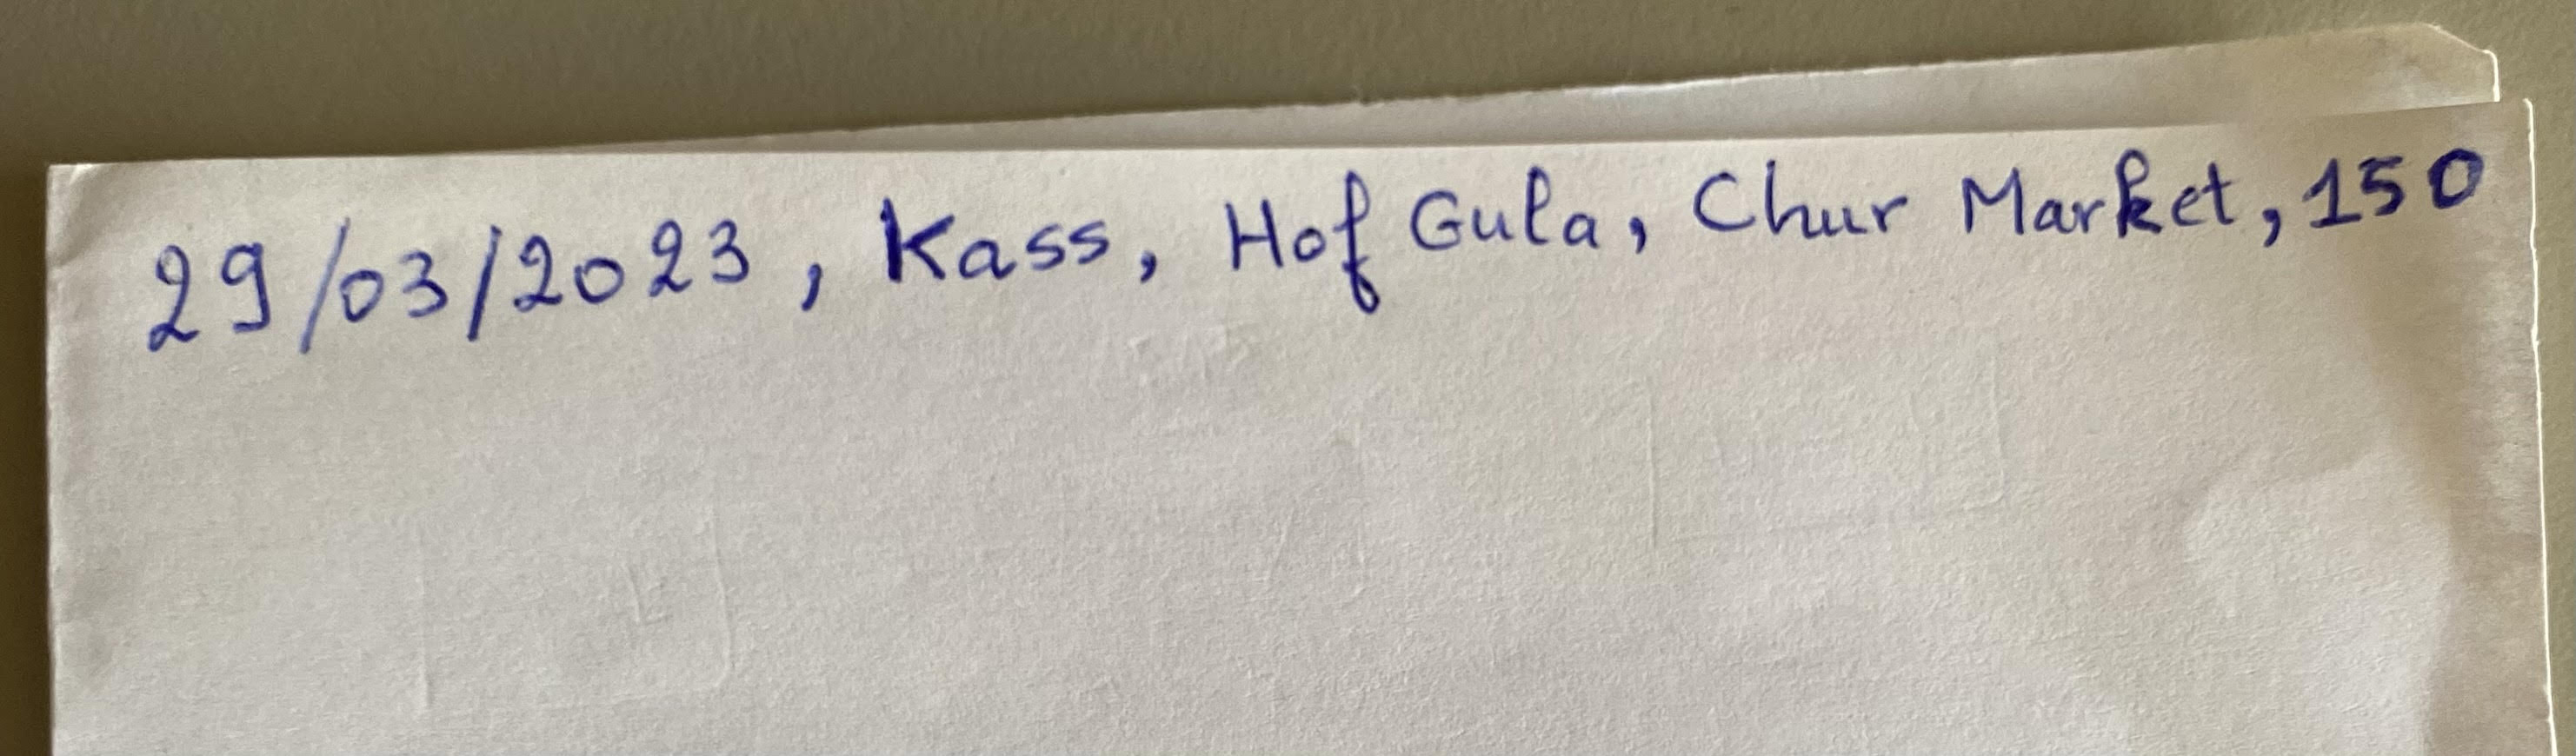 29/03/2023, Kass, Hof Gula, Chur Market, 150